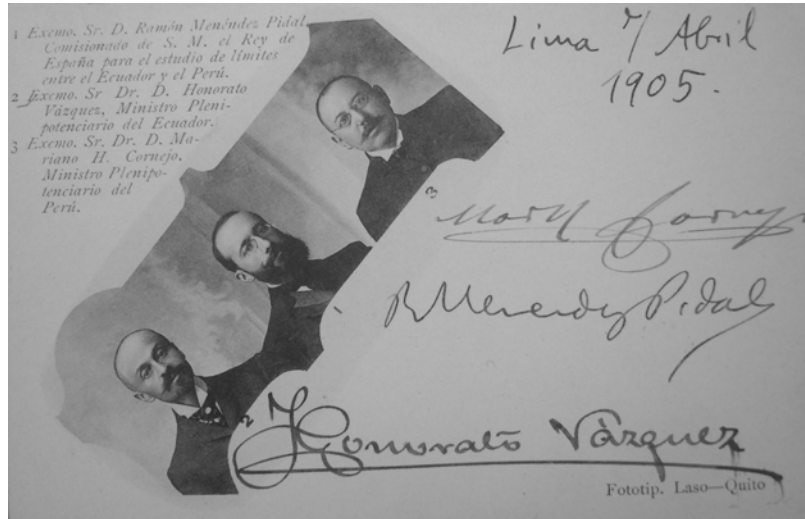 1 Exemo. Sr. D. Ramón Menéndez Pidal,
Comisionado de S. M. el Rey de
España para el estudio de límites
entre el Ecuador y el Perú.
2 Exemo. Sr Dr. D. Honorato
Vázquez, Ministro Pleni-
potenciario del Ecuador.
3 Exemo. Sr. Dr. D. Ma-
riano H. Cornejo,
Ministro Plenipo-
tenciario del
Perú.
Lima 7/ Abril
1905.
3
Mar H Cornejo
R Menendez Pidal
1
2
Honorato Vázquez
Fototip. Laso—Quito